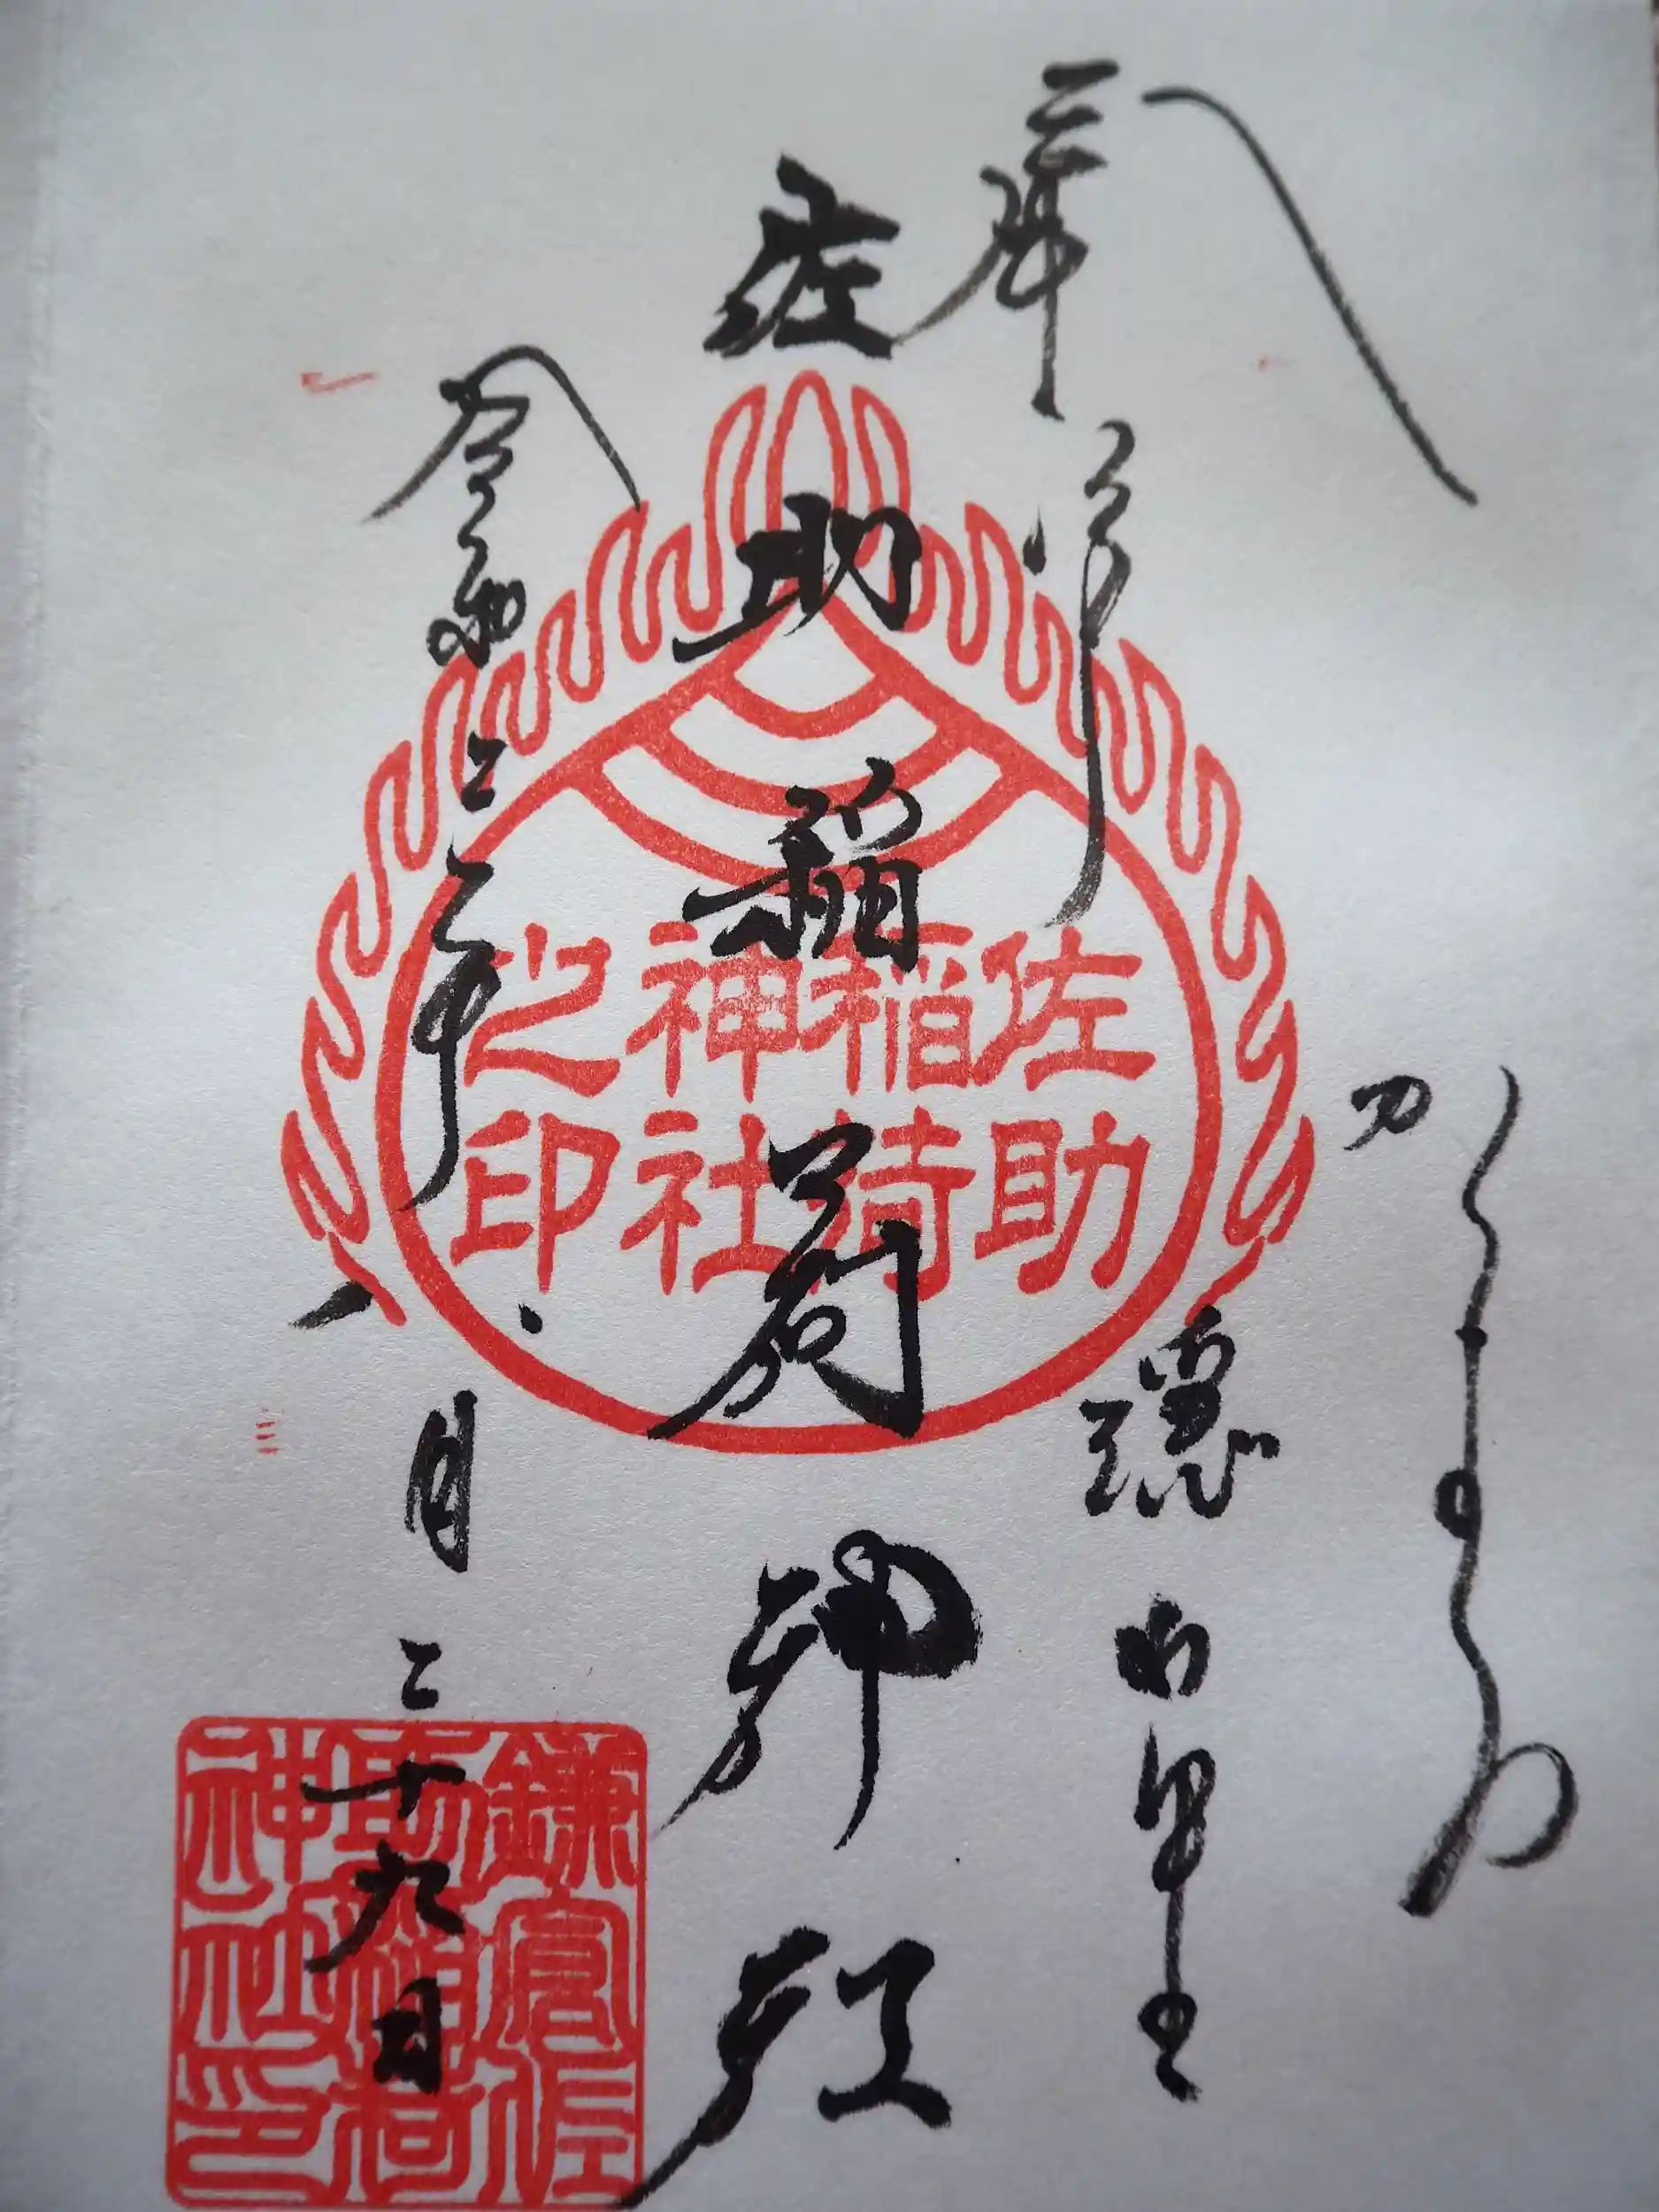 かまくら
奉拝
隠れ里
佐助稲荷神社
令和二年八月二十九日
佐助
稲荷
神社
之印
鎌倉佐
助稲荷
神社印